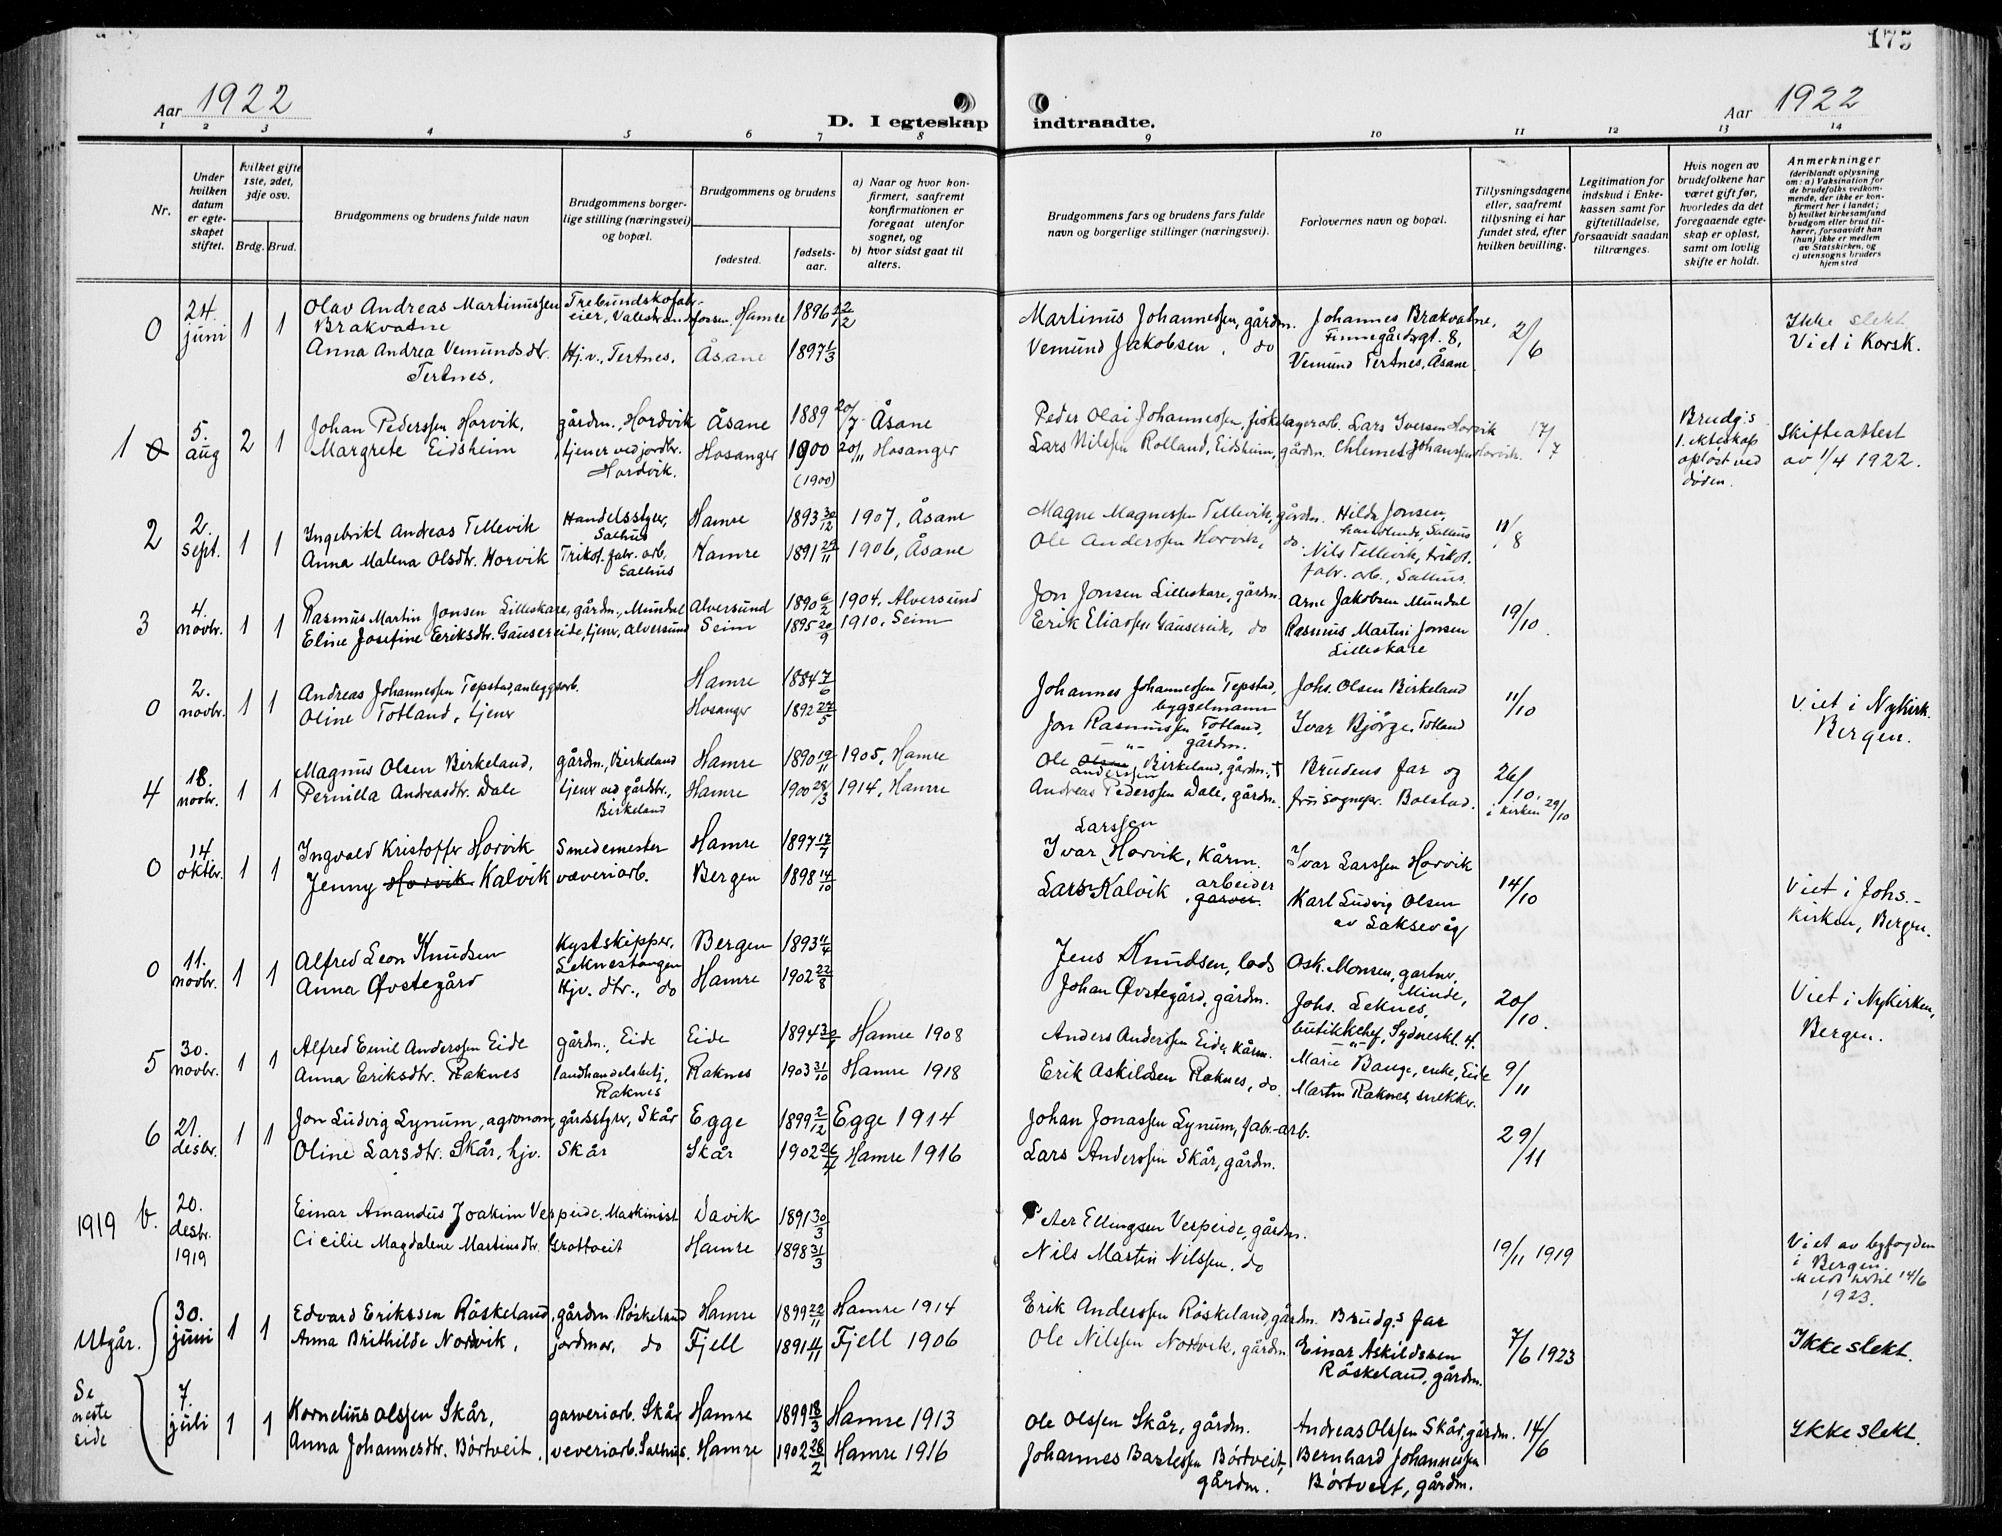 175
Aar 1922
D. I egteskap indtraadte.
Aar 1922
1 2 3 4 5 6 7 8 9 10 11 12 13 14
Nr.
Under hvilken datum er egteskapet stiftet.
Hvilket gifte 1ste, 2det, 3dje osv.
Brdg. Brud.
Brudgommens og brudens fulde navn
Brudgommens borgerlige stilling (næringsvei) og bopæl.
Brudgommens og brudens
fødested.
fødselsaar.
a) Naar og hvor konfirmert, saafremt konfirmationen er foregaat utenfor sognet, og
b) hvor sidst gaat til alters.
Brudgommens fars og brudens fars fulde navn og borgerlige stillinger (næringsvei).
Forlovernes navn og bopæl.
Tillysningsdagene eller, saafremt tillysning ei har fundet sted, efter hvilken bevilling.
Legitimation for indskud i Enkekassen samt for giftetilladelse, forsaavidt saadan tiltrænges.
Hvis nogen av brudefolkene har været gift før, hvorledes da det foregaaende egteskap er opløst, samt om lovlig skifte er holdt.
Anmerkninger (deriblandt oplysning om: a) Vaksination for de brudefolks vedkommende, der ikke er konfirmert her i landet; b) hvilket kirkesamfund brudgom eller brud tilhører, forsaavidt han (hun) ikke er medlem av Statskirken, og c) utensogns bruders hjemsted
0 24. juni 1 1 Olav Andreas Martinussen Brakvatne Trebundskofabr.eier, Valestrandsfossen. Hamre 1896 12/12 Martinus Johannessen, gårdm. Johannes Brakvatne, Finnegårdsgt. 8, 2/6 Ikke slekt
Anna Andrea Vemundsdtr. Tertnes. Hj.v., Tertnes. Åsane 1897 1/3 Vemund Jakobsen, do Vemund Tertnes, Åsane Viet i Korsk.
1 0 5. aug 2 1 Johan Pederssen Horvik, gårdm., Hordvik Åsane 1889 20/7 Åsane Peder Olai Johannessen, fiskelagerarb. Lars Iversen Horvik 17/7 Brudg.s 1. ekteskap opløst ved døden. Skifteattest av 1/4 1922.
Margrete Eidsheim tjener ved jordbr. Hordvik. Hosanger 1900 (1900) 20/11 Hosanger Lars Nilssen Rolland, Eidsheim, gårdm. Johanssen Horvik.
2 2. sept. 1 1 Ingebrikt Andreas Tellevik Handelsstyrer, Salhus Hamre 1893 30/12 1907, Åsane Magne Magnessen Tellevik, gårdm. Hilda Jonsen, handlende, Salhus 11/8
Anna Malena Olsdtr. Horvik Trikot. fabr. arb. Salhus Hamre 1891 29/11 1906, Åsane Ole Anderssen Horvik, do. Nils Tellevik, trikot. fabr. arb., Salhus.
3 4. novbr. 1 1 Rasmus Martin Jonsen Lilleskare, gårdm., Mundal Alversund 1890 6/2 1904, Alversund Jon Jonsen Lilleskare, gårdm. Arne Jakobsen Mundal 19/10.
Eline Josefine Eriksdtr. Gausereide, tjener, Alversund Seim 1895 20/9 1910, Seim Erik Eliassen Gausereide, do Rasmus Martin Jonsen Lilleskare
0 2. novbr. 1 1 Andreas Johannessen Tepstad, anleggsarb. Hamre 1884 7/6 Johannes Johannessen Tepstad, bygselmann Johs. Olsen Birkeland 11/10 Viet i Nykirk. Bergen.
Oline Totland, tjener Hosanger 1892 27/5 Jon Rasmussen Totland, gårdm. Ivar Bjørge, Totland
4 18. novbr. 1 1 Magnus Olsen Birkeland, gårdm., Birkeland Hamre 1890 19/11 1905, Hamre Ole Olsen Anderssen Birkeland, gårdm., † Brudens far og 26/10.
Pernilla Andreasdtr. Dale tjener ved gårdbr., Birkeland Hamre 1900 28/3 1914, Hamre Andreas Pederssen Dale, gårdm. fru sognepr. Bolstad. i kirken 29/10
0 14 oktbr. 1 1 Ingvald Kristoffer Horvik Smedemester Hamre 1897 17/7 Ivar Larssen Horvik, Kårm. Ivar Larssen Horvik 14/10 Viet i Johs.-kirken, Bergen.
Jenny Horvik Kalvik væveriarb. Bergen 1898 14/10 Lars Kalvik, arbeider garver. Karl Ludvig Olsen av Laksevåg
0 11. novbr. 1 1 Alfred Leon Knudsen Kystskipper, Leknestangen Bergen 1893 11/4 Jens Knudsen, lods Osk. Monsen, gartner, Minde, 20/10. Viet i Nykirken, Bergen.
Anna Øvstegård Hjv. dtr., do Hamre 1902 22/8 Johan Øvstegård, gårdm. Johs. Leknes, butikkchef, Sydneskl. 4.
5 30. novbr. 1 1 Alfred Emil Anderssen Eide gårdm., Eide Eide 1894 Hamre 1908 Anders Anderssen Eide, Kårm. Marie Bauge, enke, Eide 9/11
Anna Eriksdtr. Raknes landhandelsbetj. Raknes Raknes 1903 31/10 Hamre 1918 Erik Askildsen Raknes, do Martin Raknes, snekker.
6 21. desbr. 1 1 Jon Ludvig Lynum, agronom, gårdsstyrer, Skår Egge 1899 2/12 Egge 1914 Johan Jonassen Lynum, fabr.-arb. 29/11
Oline Larsdtr. Skår, hjv. Skår Skår 1902 26/4 Hamre 1916 Lars Anderssen Skår, gårdm.
1919 b. 20. desbr. 1919 Einar Amandus Joakim Verpeide. Maskinist Davik 1891 30/3 Peter Ellingsen Verpeide, gårdm. 19/11 1919 Viet av byfogden i Bergen. Meldt hertil 14/6 1923.
Cicilie Magdalene Martinsdtr. Grottveit Hamre 1898 31/3 Nils Martin Nilssen. do
Utgår. Se neste side
30. juni 1 1 Edvard Erikssen Röskeland, gårdm Röskeland Hamre 1899 22/11 Hamre 1914 Erik Anderssen Röskeland, gårdm. Brudg.s far 7/6 1923 Ikke slekt.
Anna Brithilde Nordvik, jordmor, do Fjell 1891 4/11 Fjell 1906 Ole Nilssen Nordvik, gårdm Einar Askildssen Röskeland, gårdm.
7. juli 1 1 Kornelius Olssen Skår, garveriarb. Skår Hamre 1899 18/3 Hamre 1913 Ole Olssen Skår, gårdm. Andreas Olssen Skår, gårdm. 14/6 Ikke slekt.
Anna Johannesdtr. Börtveit, veveriarb. Salhus. Hamre 1902 28/2 Hamre 1916 Johannes Bartessen Börtveit, gårdm. Bernhard Johannessen Börtveit, gårdm.